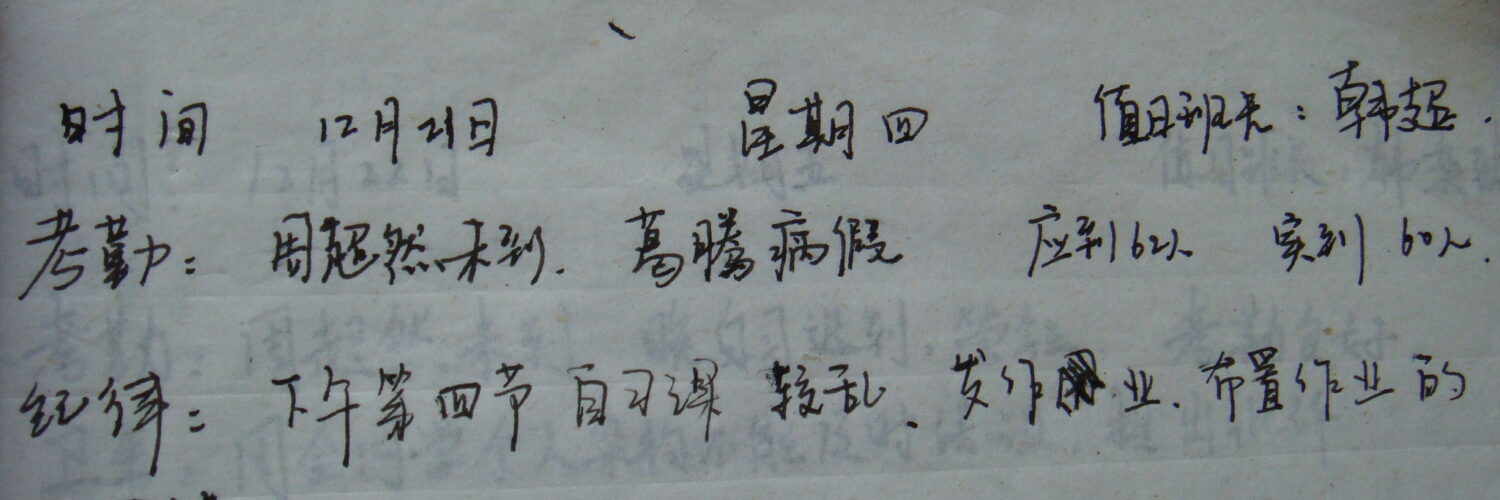 时间 12月21日 星期四 值日班长：韩超.
考勤：周超然未到. 葛腾病假 应到62人 实到60人.
纪律：下午第四节自习课较乱、发作业、布置作业的